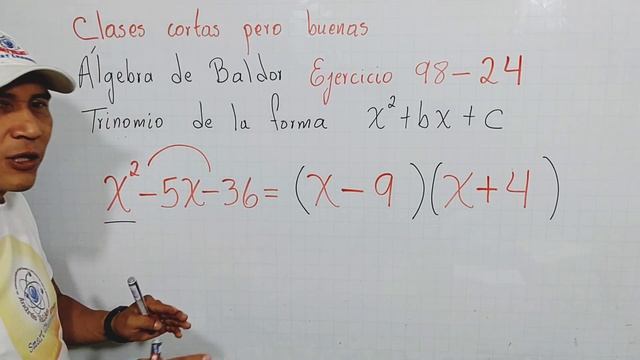 Clases cortas pero buenas
Álgebra de Baldor Ejercicio 98-24
Trinomio de la forma x²+bx+c
x²-5x-36=(x-9)(x+4)